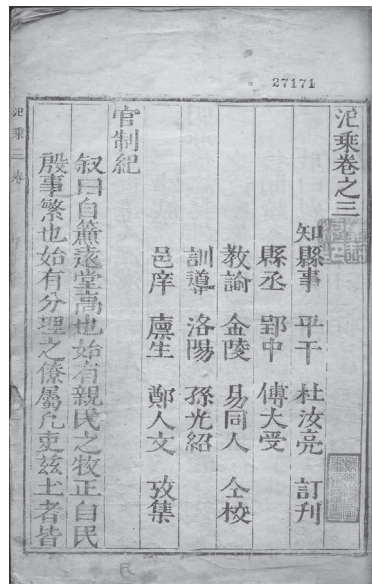 27171
汜乘卷之三
知縣事 平干 杜汝亮 訂刊
縣丞 郢中 傅大受
教諭 金陵 易同人 仝校
訓導 洛陽 孫光紹
邑庠 廪生 鄭人文 攷集
官制紀
叙曰自簾遠堂高也始有親民之牧正自民
殷事繁也始有分理之僚屬凢吏兹土者皆
汜乘三卷